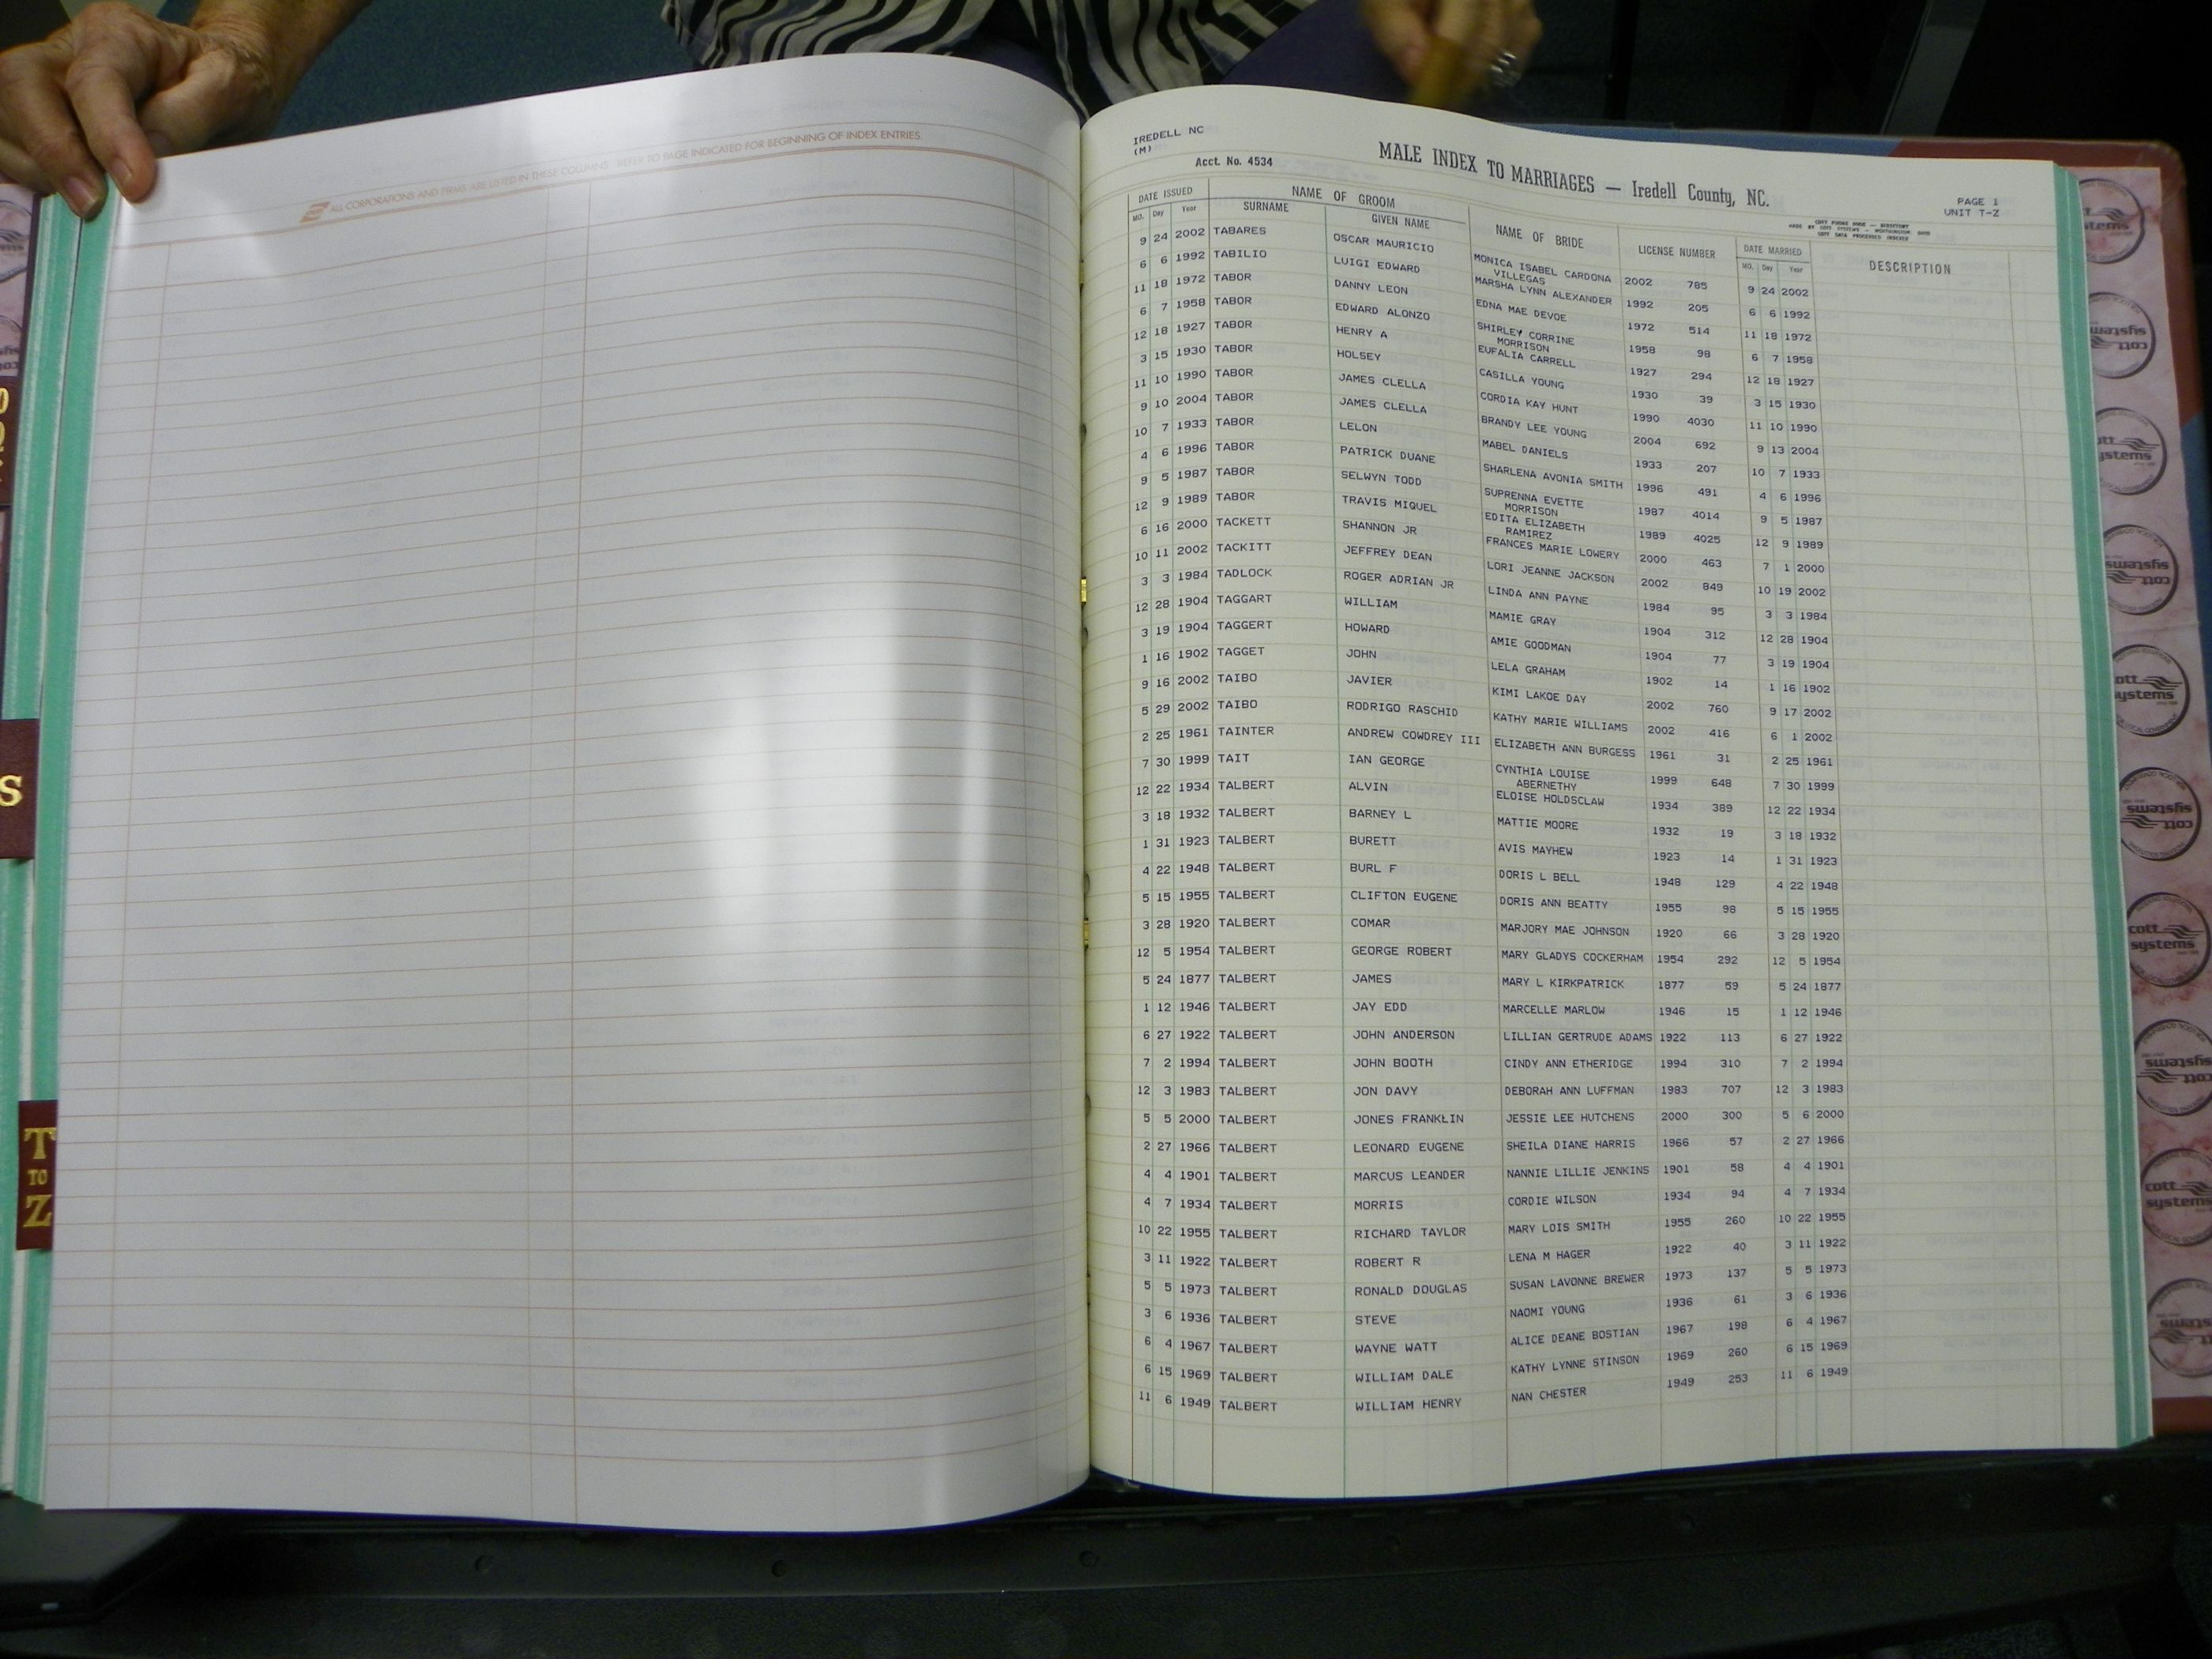 ALL CORPORATIONS AND FIRMS ARE LISTED IN THESE COLUMNS. REFER TO PAGE INDICATED FOR BEGINNING OF INDEX ENTRIES.
S
T
TO
Z
IREDELL NC
(M)
Acct. No. 4534
MALE INDEX TO MARRIAGES — Iredell County, NC.
PAGE 1
UNIT T-Z
DATE ISSUED NAME OF GROOM NAME OF BRIDE LICENSE NUMBER DATE MARRIED DESCRIPTION
MO. Day Year SURNAME GIVEN NAME MO. Day Year
9 24 2002 TABARES OSCAR MAURICIO MONICA ISABEL CARDONA 2002 785 9 24 2002
VILLEGAS
6 6 1992 TABILIO LUIGI EDWARD MARSHA LYNN ALEXANDER 1992 205 6 6 1992
11 18 1972 TABOR DANNY LEON EDNA MAE DEVOE 1972 514 11 18 1972
6 7 1958 TABOR EDWARD ALONZO SHIRLEY CORRINE 1958 98 6 7 1958
MORRISON
12 18 1927 TABOR HENRY A EUFALIA CARRELL 1927 294 12 18 1927
3 15 1930 TABOR HOLSEY CASILLA YOUNG 1930 39 3 15 1930
11 10 1990 TABOR JAMES CLELLA CORDIA KAY HUNT 1990 4030 11 10 1990
9 10 2004 TABOR JAMES CLELLA BRANDY LEE YOUNG 2004 692 9 13 2004
10 7 1933 TABOR LELON MABEL DANIELS 1933 207 10 7 1933
4 6 1996 TABOR PATRICK DUANE SHARLENA AVONIA SMITH 1996 491 4 6 1996
9 5 1987 TABOR SELWYN TODD SUPRENNA EVETTE 1987 4014 9 5 1987
MORRISON
12 9 1989 TABOR TRAVIS MIQUEL EDITA ELIZABETH 1989 4025 12 9 1989
RAMIREZ
6 16 2000 TACKETT SHANNON JR FRANCES MARIE LOWERY 2000 463 7 1 2000
10 11 2002 TACKITT JEFFREY DEAN LORI JEANNE JACKSON 2002 849 10 19 2002
3 3 1984 TADLOCK ROGER ADRIAN JR LINDA ANN PAYNE 1984 95 3 3 1984
12 28 1904 TAGGART WILLIAM MAMIE GRAY 1904 312 12 28 1904
3 19 1904 TAGGERT HOWARD AMIE GOODMAN 1904 77 3 19 1904
1 16 1902 TAGGET JOHN LELA GRAHAM 1902 14 1 16 1902
9 16 2002 TAIBO JAVIER KIMI LAKOE DAY 2002 760 9 17 2002
5 29 2002 TAIBO RODRIGO RASCHID KATHY MARIE WILLIAMS 2002 416 6 1 2002
2 25 1961 TAINTER ANDREW COWDREY III ELIZABETH ANN BURGESS 1961 31 2 25 1961
7 30 1999 TAIT IAN GEORGE CYNTHIA LOUISE 1999 648 7 30 1999
ABERNETHY
12 22 1934 TALBERT ALVIN ELOISE HOLDSCLAW 1934 389 12 22 1934
3 18 1932 TALBERT BARNEY L MATTIE MOORE 1932 19 3 18 1932
1 31 1923 TALBERT BURETT AVIS MAYHEW 1923 14 1 31 1923
4 22 1948 TALBERT BURL F DORIS L BELL 1948 129 4 22 1948
5 15 1955 TALBERT CLIFTON EUGENE DORIS ANN BEATTY 1955 98 5 15 1955
3 28 1920 TALBERT COMAR MARJORY MAE JOHNSON 1920 66 3 28 1920
12 5 1954 TALBERT GEORGE ROBERT MARY GLADYS COCKERHAM 1954 292 12 5 1954
5 24 1877 TALBERT JAMES MARY L KIRKPATRICK 1877 59 5 24 1877
1 12 1946 TALBERT JAY EDD MARCELLE MARLOW 1946 15 1 12 1946
6 27 1922 TALBERT JOHN ANDERSON LILLIAN GERTRUDE ADAMS 1922 113 6 27 1922
7 2 1994 TALBERT JOHN BOOTH CINDY ANN ETHERIDGE 1994 310 7 2 1994
12 3 1983 TALBERT JON DAVY DEBORAH ANN LUFFMAN 1983 707 12 3 1983
5 5 2000 TALBERT JONES FRANKLIN JESSIE LEE HUTCHENS 2000 300 5 6 2000
2 27 1966 TALBERT LEONARD EUGENE SHEILA DIANE HARRIS 1966 57 2 27 1966
4 4 1901 TALBERT MARCUS LEANDER NANNIE LILLIE JENKINS 1901 58 4 4 1901
4 7 1934 TALBERT MORRIS CORDIE WILSON 1934 94 4 7 1934
10 22 1955 TALBERT RICHARD TAYLOR MARY LOIS SMITH 1955 260 10 22 1955
3 11 1922 TALBERT ROBERT R LENA M HAGER 1922 40 3 11 1922
5 5 1973 TALBERT RONALD DOUGLAS SUSAN LAVONNE BREWER 1973 137 5 5 1973
3 6 1936 TALBERT STEVE NAOMI YOUNG 1936 61 3 6 1936
6 4 1967 TALBERT WAYNE WATT ALICE DEANE BOSTIAN 1967 198 6 4 1967
6 15 1969 TALBERT WILLIAM DALE KATHY LYNNE STINSON 1969 260 6 15 1969
11 6 1949 TALBERT WILLIAM HENRY NAN CHESTER 1949 253 11 6 1949
cott
systems